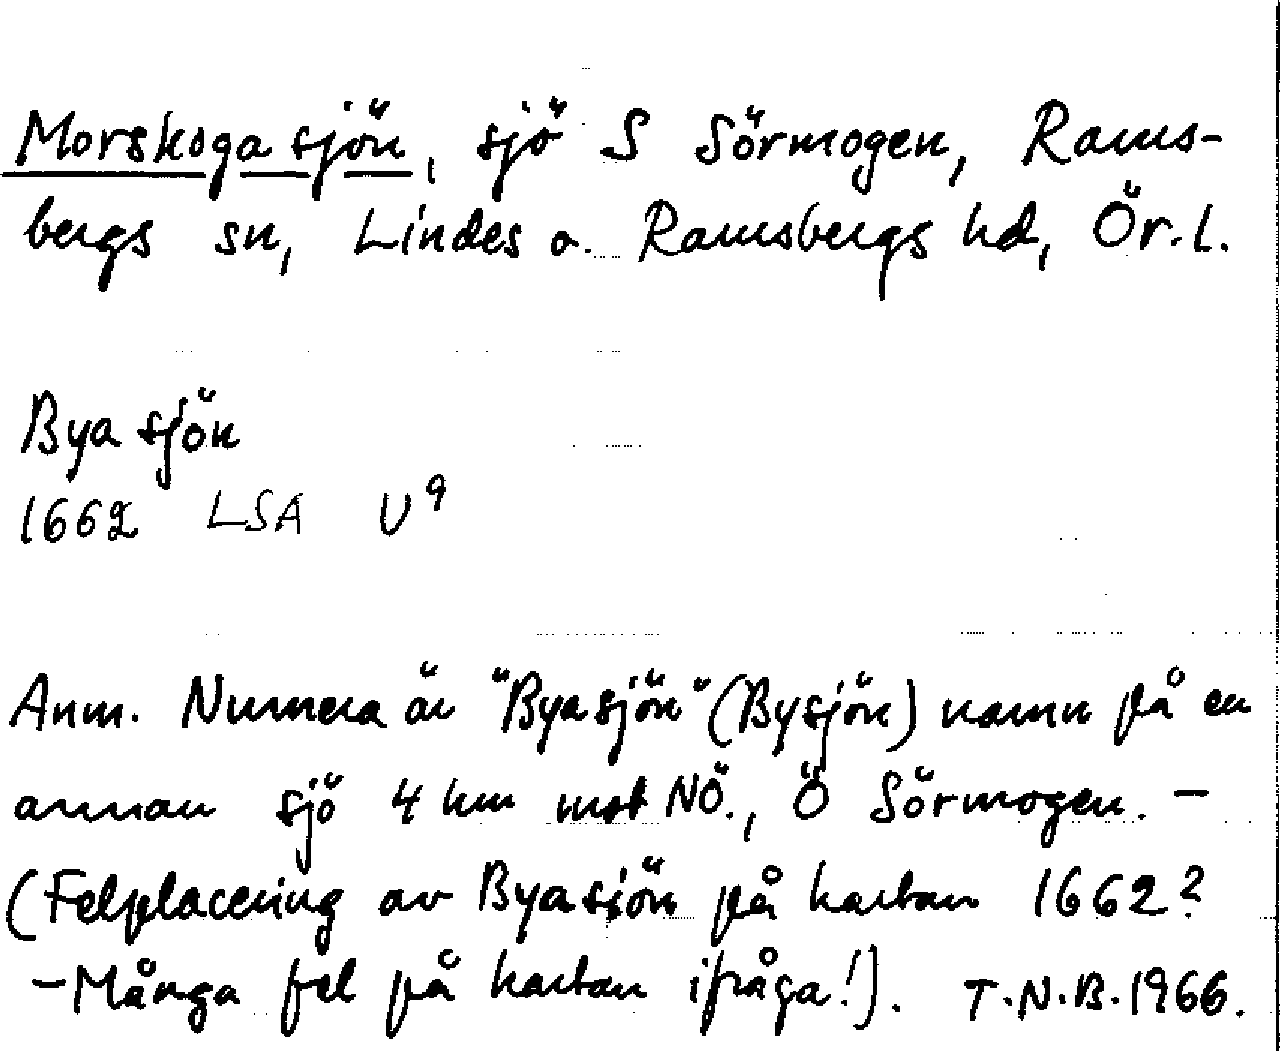 Morskogasjön, sjö S Sörmogen, Rams-
bergs sn, Lindes o. Ramsbergs hd, Ör.l.
Byasjön
1662 LSA U9
Anm. Numera är "Byasjön" (Bysjön) namn på en
annan sjö 4 km mot NÖ., Ö Sörmogen. –
(Felplacering av Byasjön på kartan 1662?
– Många fel på kartan ifråga!). T.N.B. 1966.